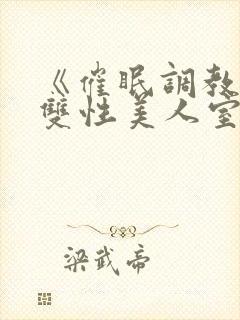 《催眠調教
雙性美人室
梁武帝